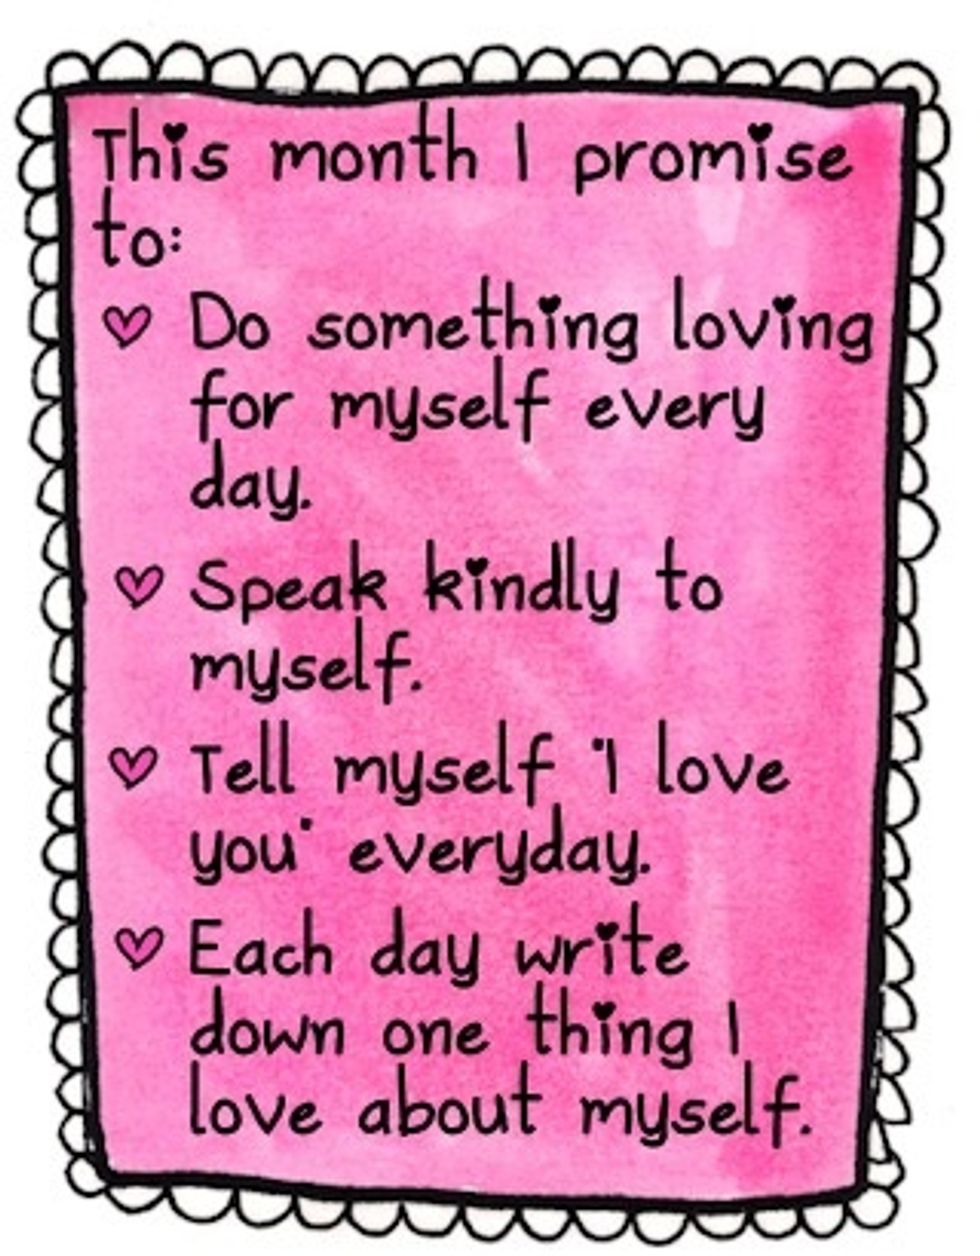 This month I promise
to:
Do something loving
for myself every
day.
Speak kindly to
myself.
Tell myself "I love
you" everyday.
Each day write
down one thing I
love about myself.